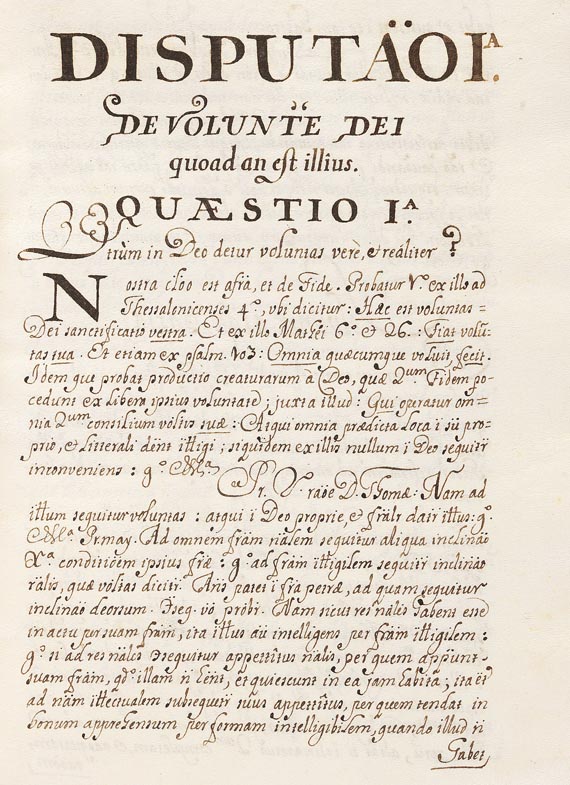 DISPUTÄOI.ᴬ
DE VOLUNTE DEI
quoad an est illius.
QUÆSTIO I.ᴬ
Utrùm in Deo detur voluntas verè, et reáliter?
Nostra cloo est afra, et de Fide. Probatur V.º ex illo ad
Thessalonicenses 4.º, vbi dicitur: Hæc est voluntas=
Dei sanctificatio vestra. Et ex illo Mathei 6.º et 26: Fiat volu-
tas tua. Et etiam ex psalm. 103: Omnia quæcumque voluit, fecit.
Idem que probat productio creaturarum à Deo, quæ 2.um Fidem po-
cedunt ex libera ipsius voluntate; juxta illud: Qui operatur om-
nia 2.um consilium voltis suæ: Atqui omnia prædicta loca i sú pro-
prio, et litterali dent itligi; siquidem ex illis nullum i Deo sequitr
inconveniens: g.º
Pr. V. raõe D. Thomæ: Nam ad
itlum sequitur voluntas: atqui i Deo proprie, et frãlr dair itlus: g.º
Pr. may. Ad omnem frãm riãlem sequitur aliqua inclinão
Xᵃ conditiõem ipsius fræ: g.º ad frãm itligilem sequitr inclinão
rãlis, quæ voltas dicitr. Ans patet i fra petræ, ad quam sequitur
inclinão deorsum. Dseg. vò probr. Nam sicut res nãles habent esse
in actu per suam frãm, ita itlus aũ intelligens per frãm itligilem:
g.º si ad res nãles dsequitur appetîtus nãlis, per quem appunt
suam frãm, qd.º illam ñ hent, et quiescunt in ea jam habita; ita et
ad nãm itlectualem subsequetr suus appetîtus, per quem tendat in
bonum apprehensum per formam intelligibilem, quando illud ñ
habet,